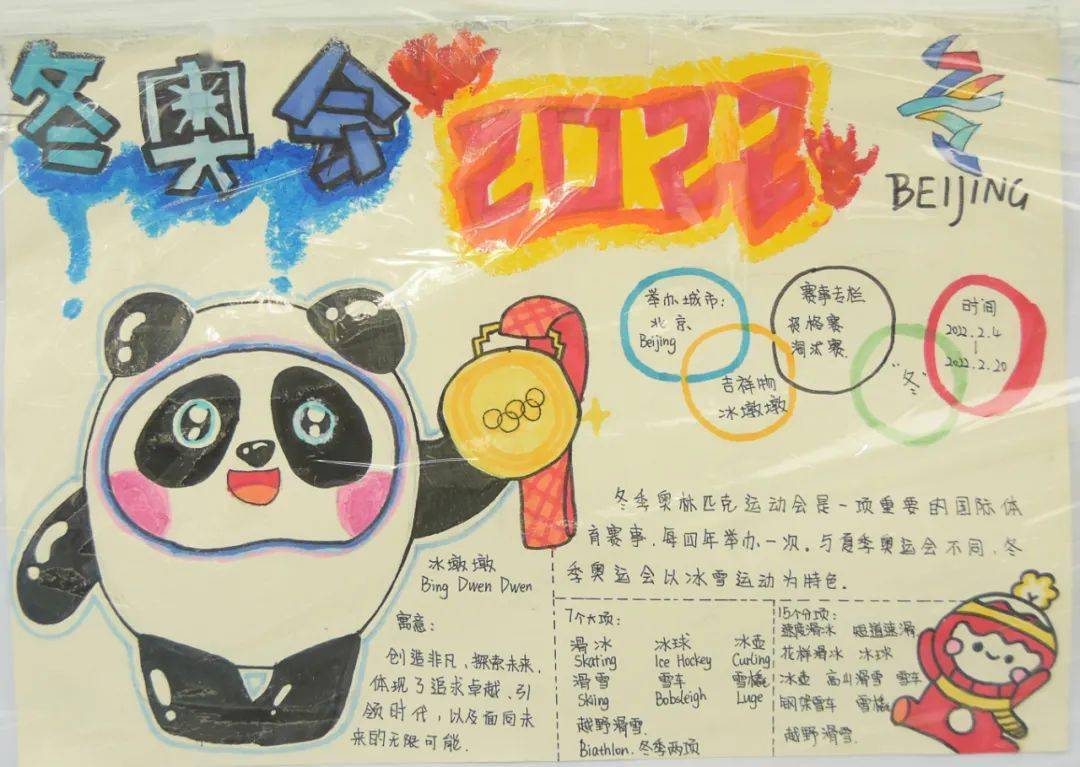 冬奥会
2022
BEIJING
举办城市:
北京
Beijing
吉祥物
冰墩墩
赛事专栏
资格赛
淘汰赛.
"冬"
时间
2022.2.4
|
2022.2.20
冬季奥林匹克运动会是一项重要的国际体
育赛事.每四年举办一次。与夏季奥运会不同,冬
季奥运会以冰雪运动为特色.
冰墩墩
Bing Dwen Dwen
寓意:
创造非凡,探索未来.
体现了追求卓越.引
领时代,以及面向未
来的无限可能.
7个大项:
滑冰 冰球 冰壶
Skating Ice Hockey Curling
滑雪 雪车 雪橇
Skiing Bobsleigh Luge
越野滑雪.
Biathlon.冬季两项
15个分项:
速度滑冰 短道速滑
花样滑冰 冰球
冰壶 高山滑雪 雪车
钢架雪车 雪橇
越野滑雪.